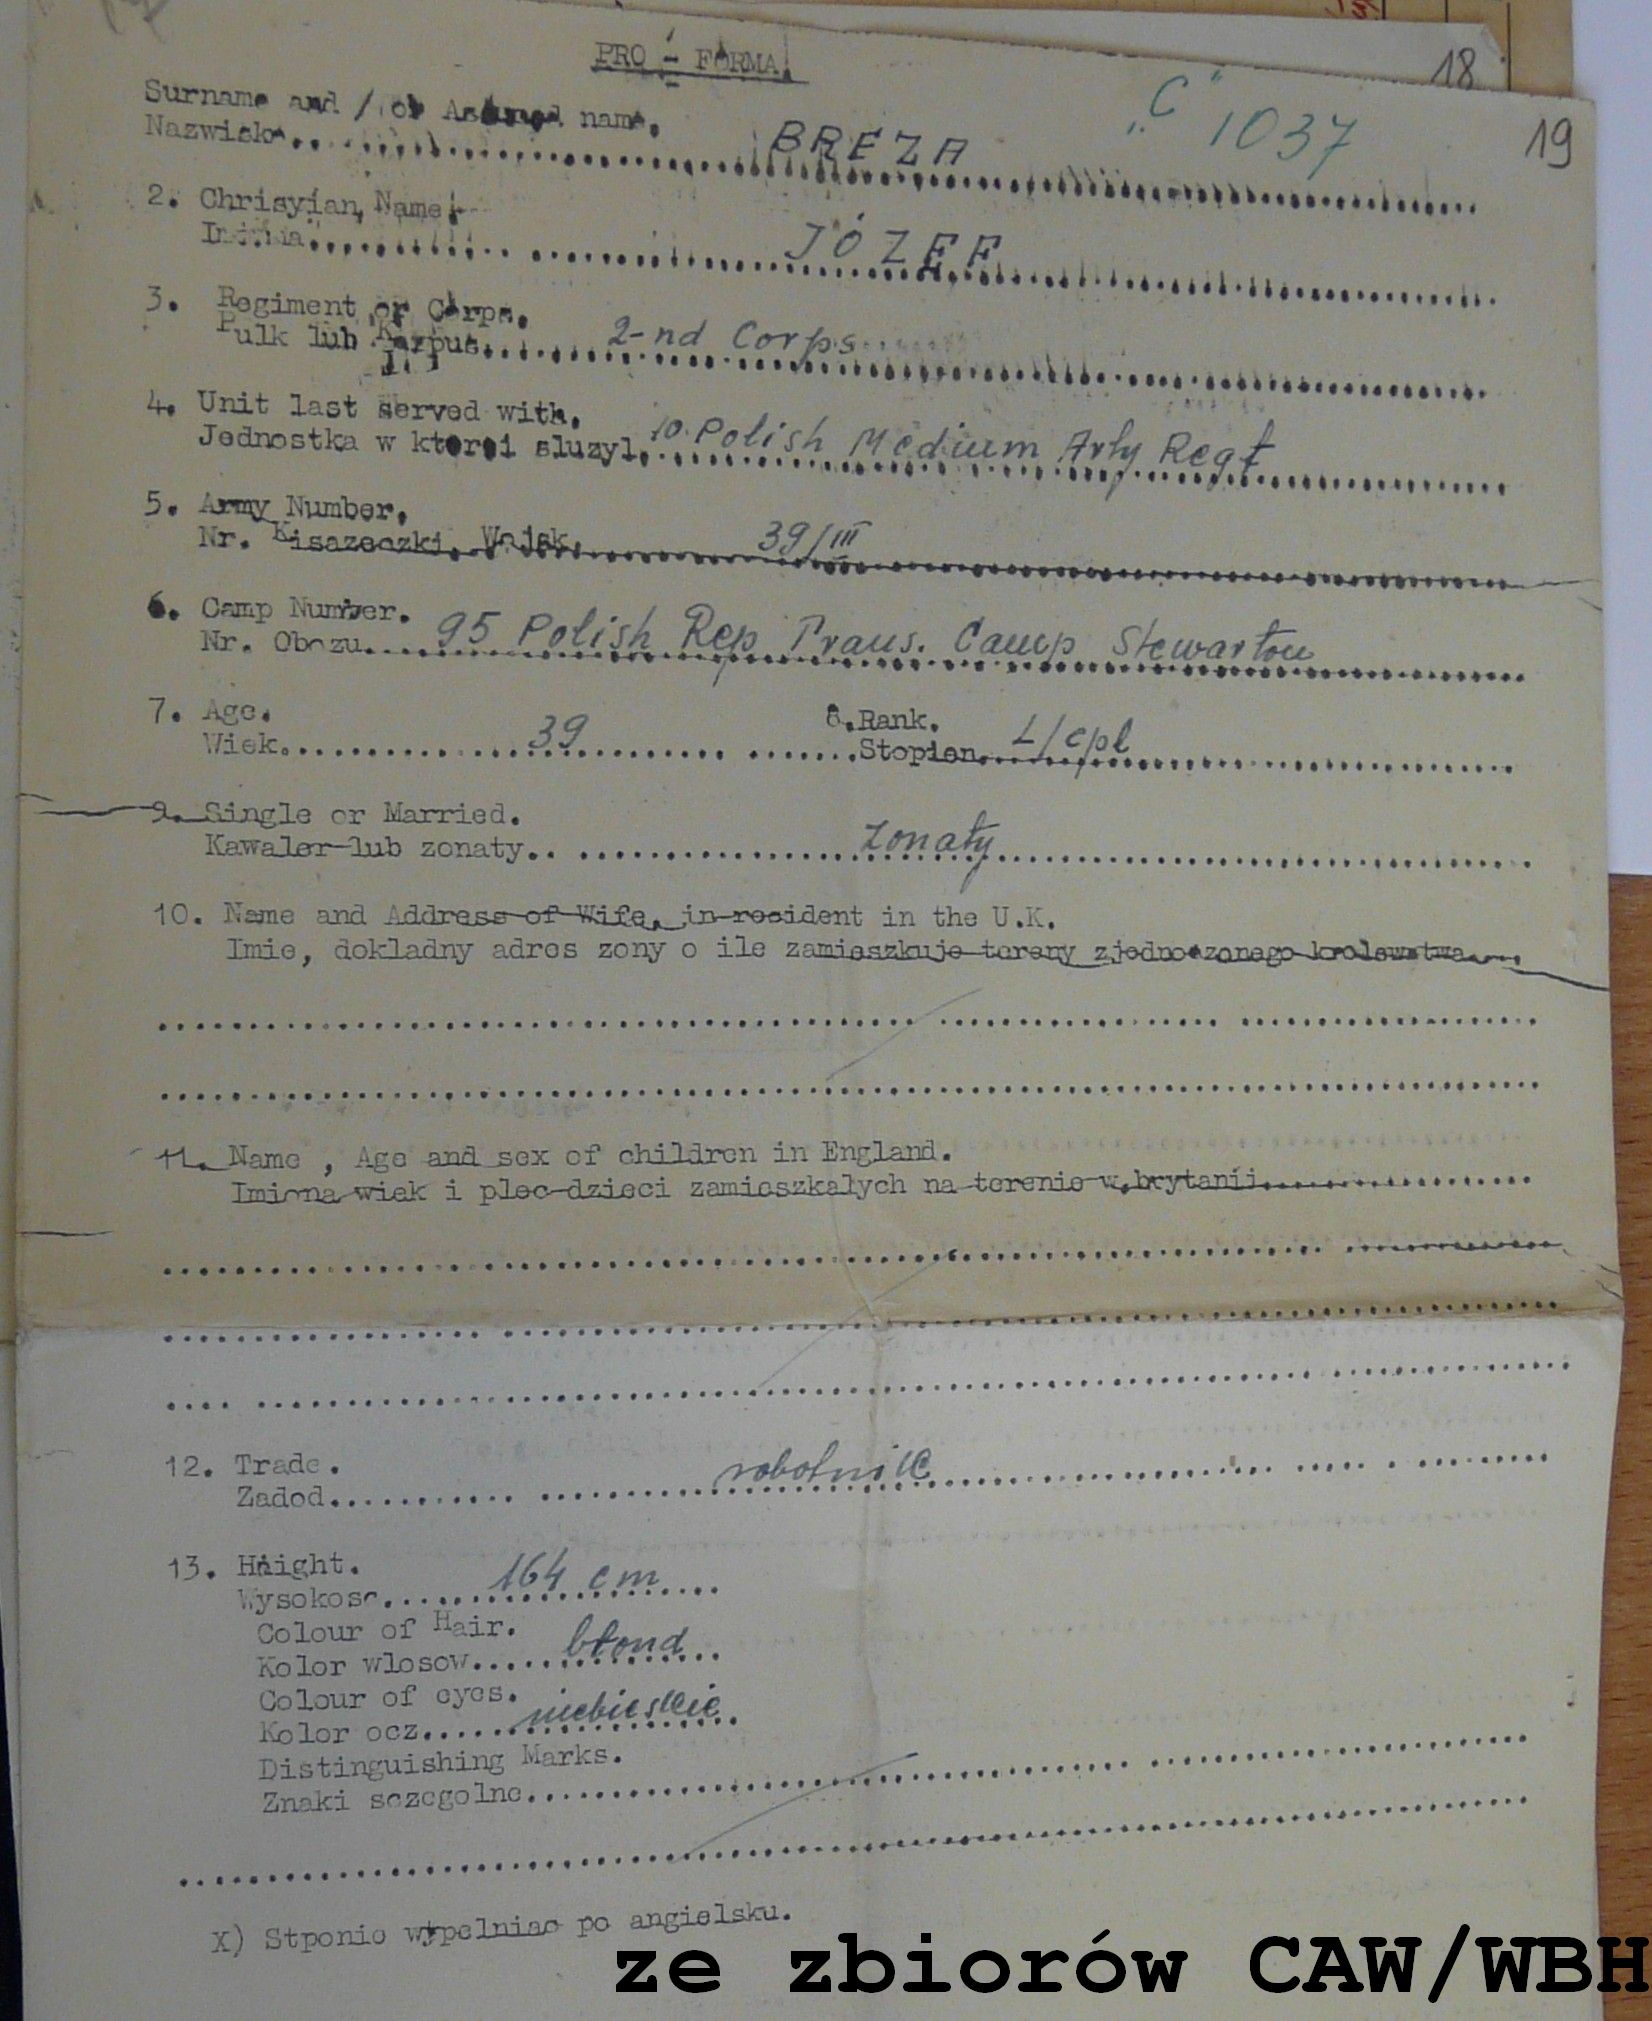 PRO - FORMA
18
Surname and / or Assumed name.
„C" 1037
19
Nazwisko.. BREZA
2. Chrisyian Name.
Imima.. JÓZEF
3. Regiment or Corps.
Pulk lub Karpus. 2-nd Corps
4. Unit last served with.
Jednostka w ktorej sluzyl. 10. Polish Medium Arty Regt
5. Army Number.
Nr. Kisazeczki. Wojsk. 39/III
6. Camp Number.
Nr. Obozu. 95 Polish Rep Trans. Camp Stewarton
7. Age. 8. Rank.
Wiek. 39 Stopien. L/cpl
9. Single or Married.
Kawaler lub zonaty.. żonaty
10. Name and Address of Wife, in resident in the U.K.
Imie, dokladny adres zony o ile zamieszkuje tereny zjednoczonego krolewstwa
11. Name , Age and sex of children in England.
Imiona wiek i plec dzieci zamieszkalych na terenie w.brytanii
12. Trade.
Zadod. robotnik
13. Haight.
Wysokosc. 164 cm
Colour of Hair.
Kolor wlosow. błond
Colour of eyes.
Kolor ocz. niebieskie
Distinguishing Marks.
Znaki sczegolne.
X) Stponie wypelniac po angielsku.
ze zbiorów CAW/WBH